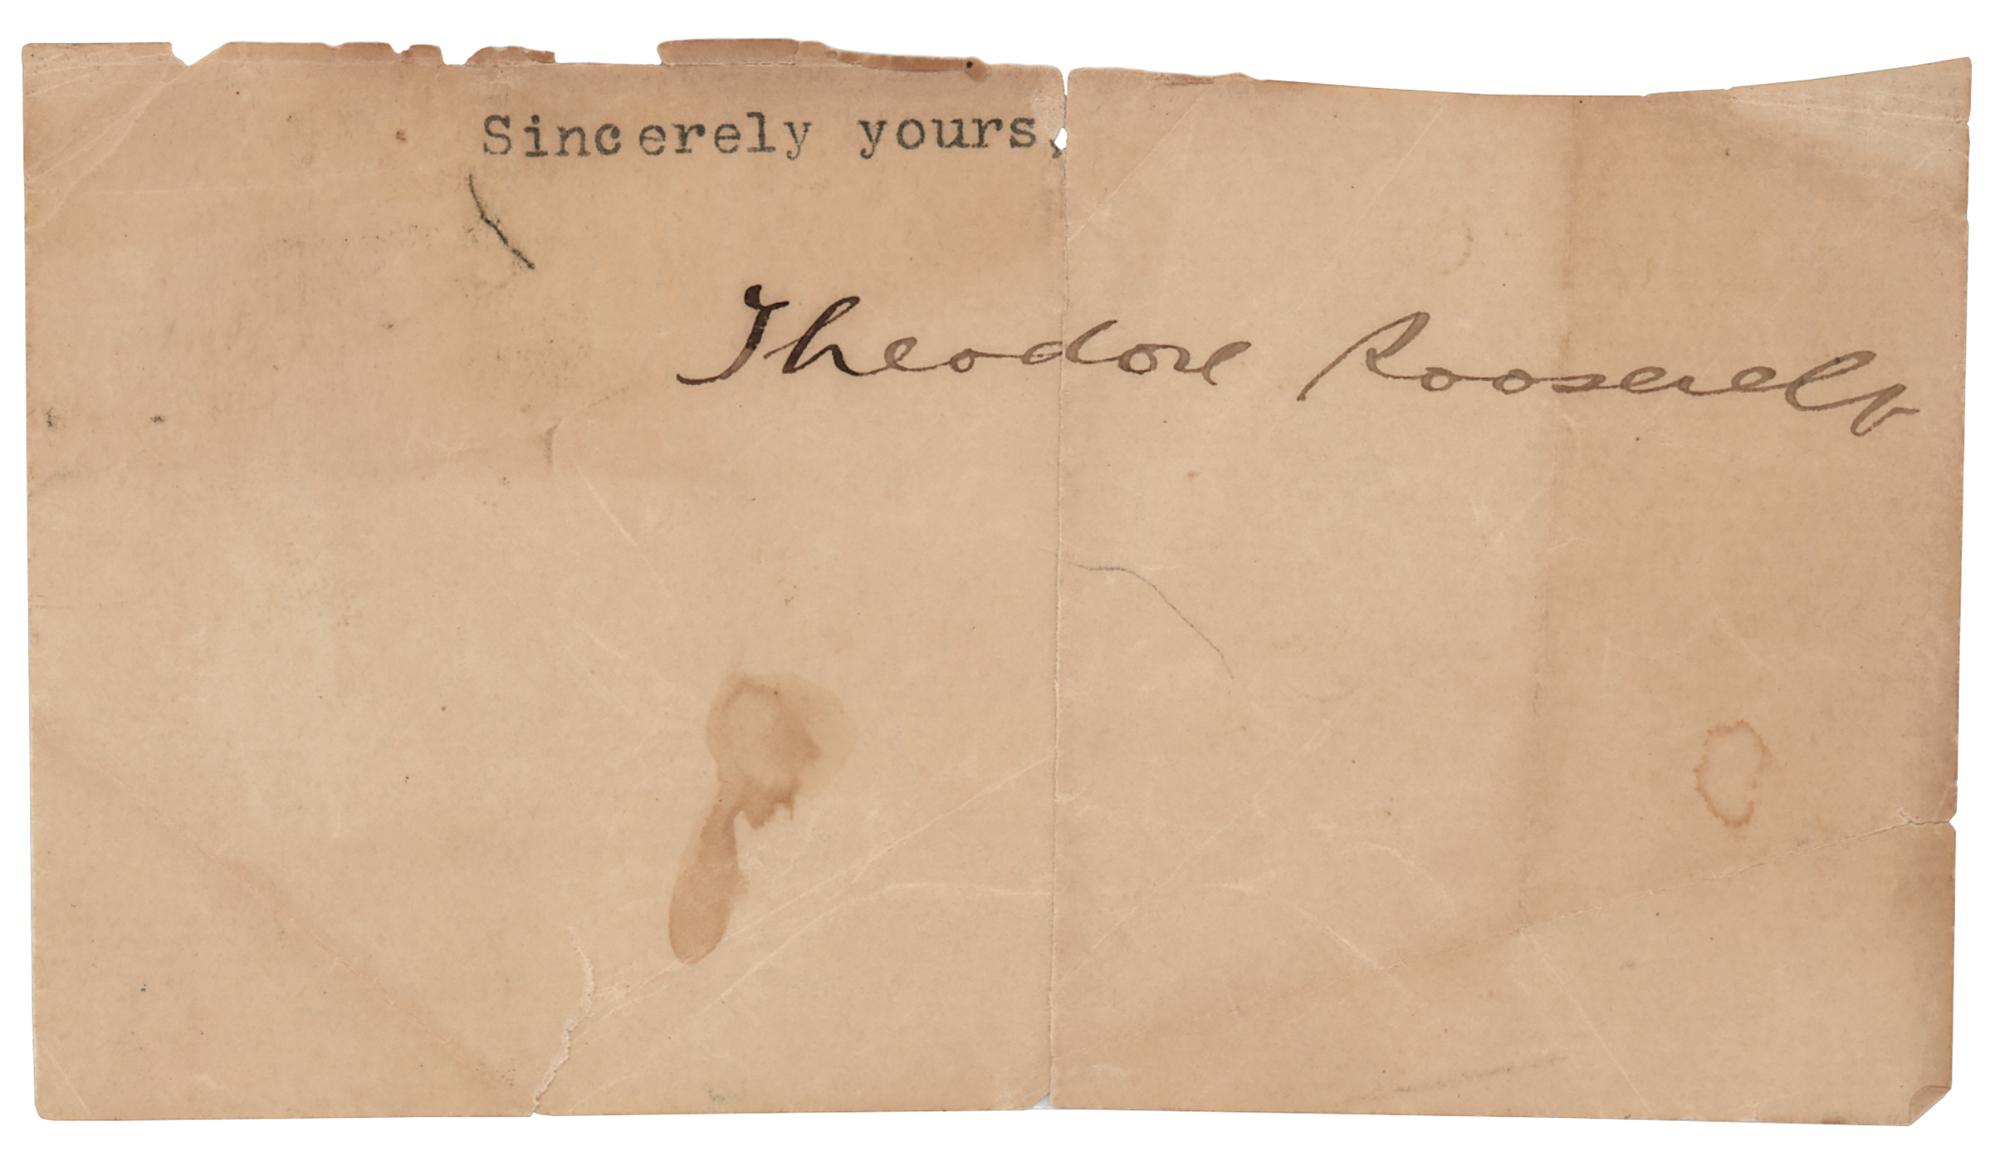 Sincerely yours,
Theodore Roosevelt